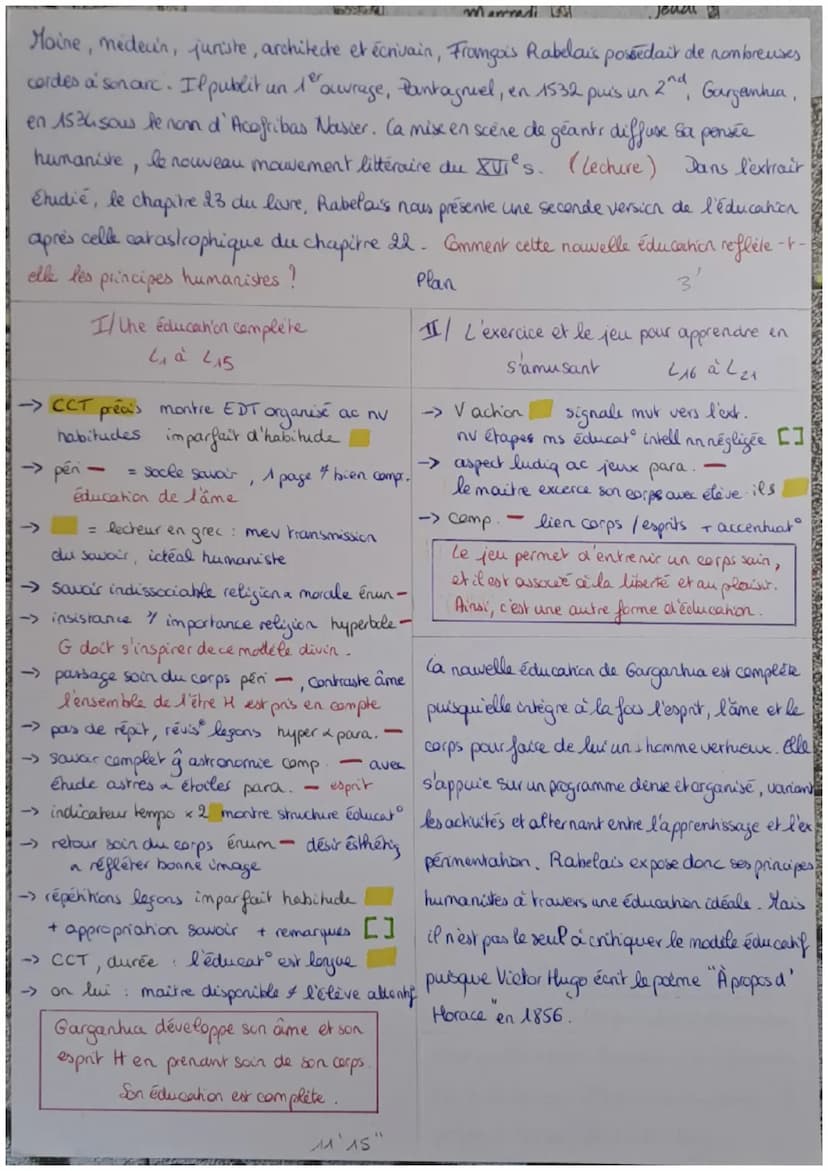 Mercredi
Jeudi
Moine, médecin, juriste, architecte et écrivain, François Rabelais possédait de nombreuses
cordes à son arc. Il publit un 1er ouvrage, Pantagruel, en 1532 puis un 2nd, Gargantua,
en 1534 sous le nom d'Acofribas Nasier. Ca mise en scène de géants diffuse sa pensée
humaniste, le nouveau mouvement littéraire du XVIe s. (Lecture) Dans l'extrait
étudié, le chapitre 23 du livre, Rabelais nous présente une seconde version de l'éducation
après celle catastrophique du chapitre 22. Comment cette nouvelle éducation reflète-t-
elle les principes humanistes ? Plan 3'
I/ Une éducation complète
L1 à L15
-> CCT précis montre EDT organisé ac nv
habitudes imparfait d'habitude
-> péri = socle savoir, 1 page # bien compr.
éducation de l'âme
-> = lecteur en grec : mev transmission
du savoir, idéal humaniste
-> savoir indissociable religion & morale énum
-> insistance importance religion hyperbole
G doit s'inspirer de ce modèle divin.
-> passage soin du corps péri, contraste âme
l'ensemble de l'être H est pris en compte
-> pas de répit, révis° leçons hyper & para.
-> savoir complet ĝ astronomie comp. avec
étude astres & étoiles para. esprit
-> indicateur tempo x 2 montre structure éducat°
-> retour soin du corps énum désir esthétiq
& réfléter bonne image
-> répétitions leçons imparfait habitude
+ appropriation savoir + remarques [ ]
-> CCT, durée : l'éducat° est longue
-> on lui : maitre disponible ≠ l'élève attentif
Gargantua développe son âme et son
esprit H en prenant soin de son corps.
Son éducation est complète.
11'15"
II/ L'exercice et le jeu pour apprendre en
s'amusant L16 à L21
-> V action signale mvt vers l'ext.
nv étapes ms éducat° intell nn négligée [ ]
-> aspect ludiq ac jeux para.
le maitre excerce son corps avec élève ils
-> comp. lien corps / esprits + accentuat°
Le jeu permet d'entrenir un corps sain,
et il est associé à la liberté et au plaisir.
Ainsi, c'est une autre forme d'éducation.
La nouvelle éducation de Gargantua est complète
puisqu'elle intègre à la fois l'esprit, l'âme et le
corps pour faire de lui un homme vertueux. Elle
s'appuie sur un programme dense et organisé, variant
les activités et alternant entre l'apprentissage et l'ex
périmentation. Rabelais expose donc ses principes
humanistes à travers une éducation idéale. Mais
il n'est pas le seul à critiquer le modèle éducatif
puisque Victor Hugo écrit le poème "À propos d'
Horace" en 1856.